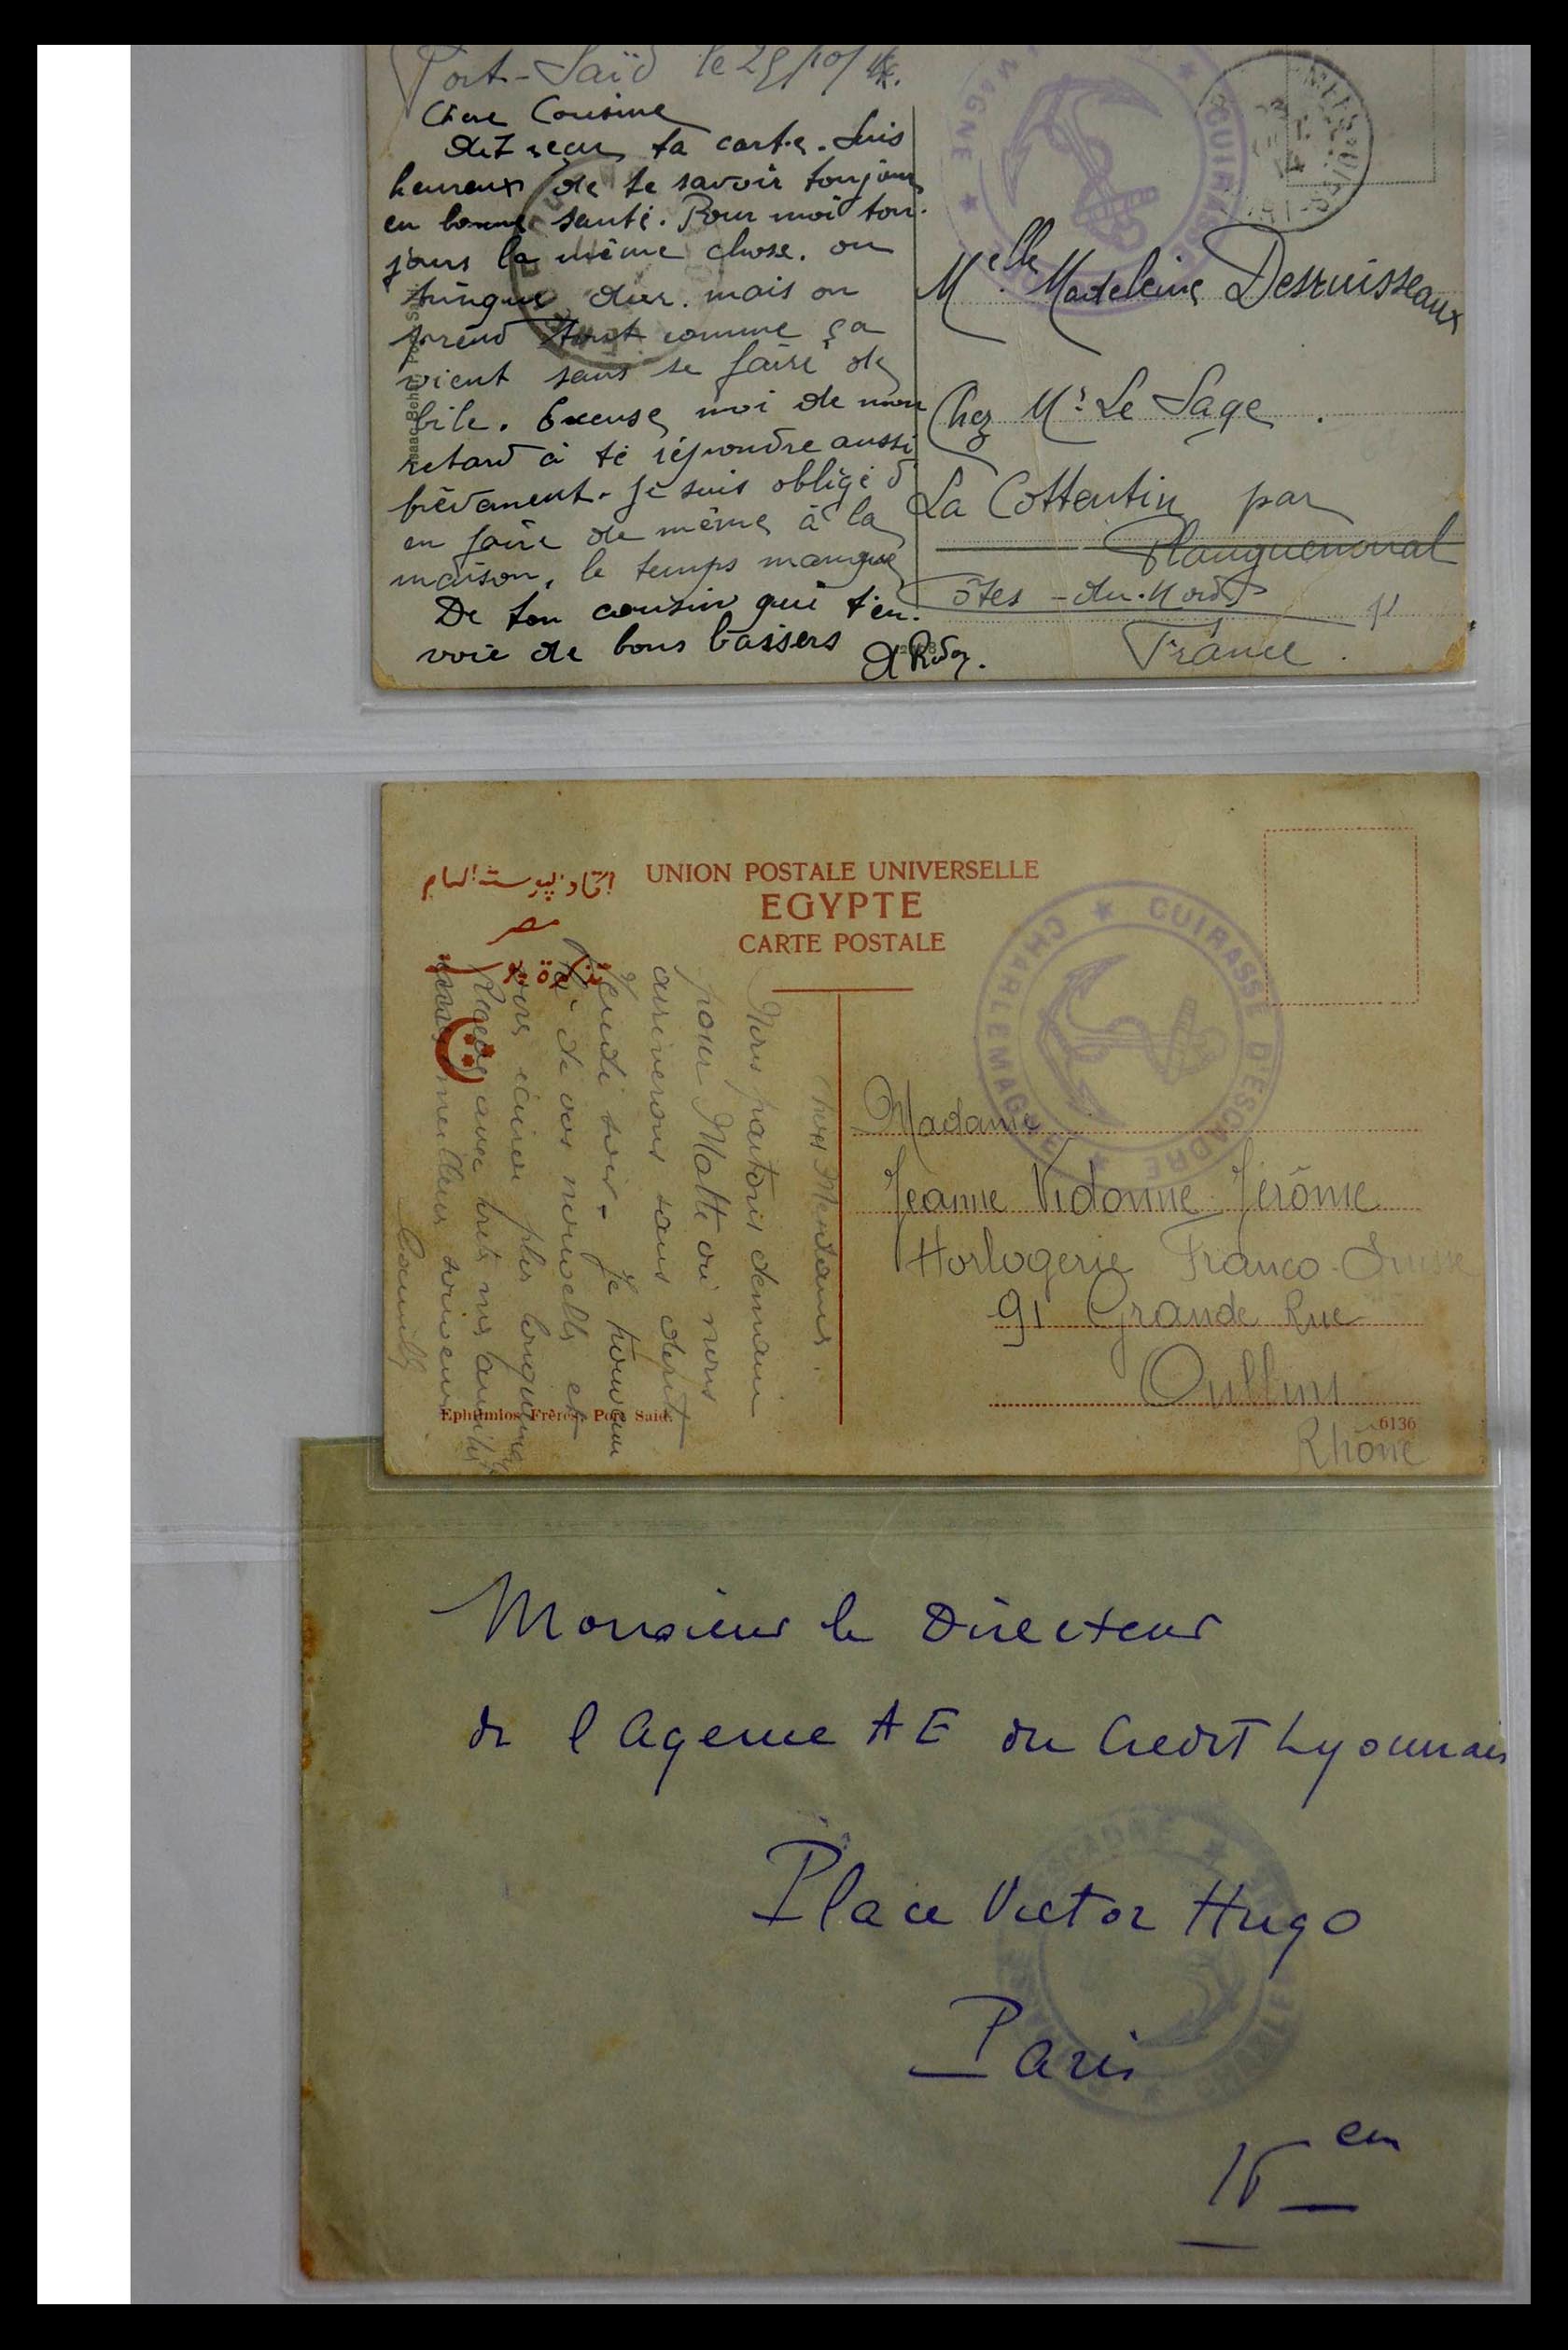 Port-Saïd le 25/10/14.
Chère Cousine
Ai reçu ta carte. Suis
heureux de te savoir toujours
en bonne santé. Pour moi tou-
jours la même chose. on
tringue dur. mais on
prend tout comme ça
vient sans se faire de
bile. Excuse moi de mon
retard à te répondre aussi
brèvement. Je suis obligé d'
en faire de même à la
maison, le temps manque
De ton cousin qui t'en-
voie de bons baisers
CUIRASSE
MAGNE
Melle Madeleine Desruisseaux
Chez Mr Le Sage
La Cottentin par
Planguenoual
Côtes-du-Nord
France.
UNION POSTALE UNIVERSELLE
EGYPTE
CARTE POSTALE
مصر
CUIRASSE D'ESCADRE ★ CHARLEMAGNE ★
Nous partons demain
pour Malte où nous
arriverons sans doute
Jeudi soir - Je
de vos nouvelles et
vous écrirai plus
avec mes amitiés
meilleur souvenir
Madame
Jeanne Vidonne Jérôme
Horlogerie Franco-Suisse
91 Grande Rue
Oullins
Rhône
Ephtimios Frères, Port Said.
6136
Monsieur le Directeur
de l'Agence AE du Credit Lyonnais
Place Victor Hugo
Paris
16 em
ESCADRE ★